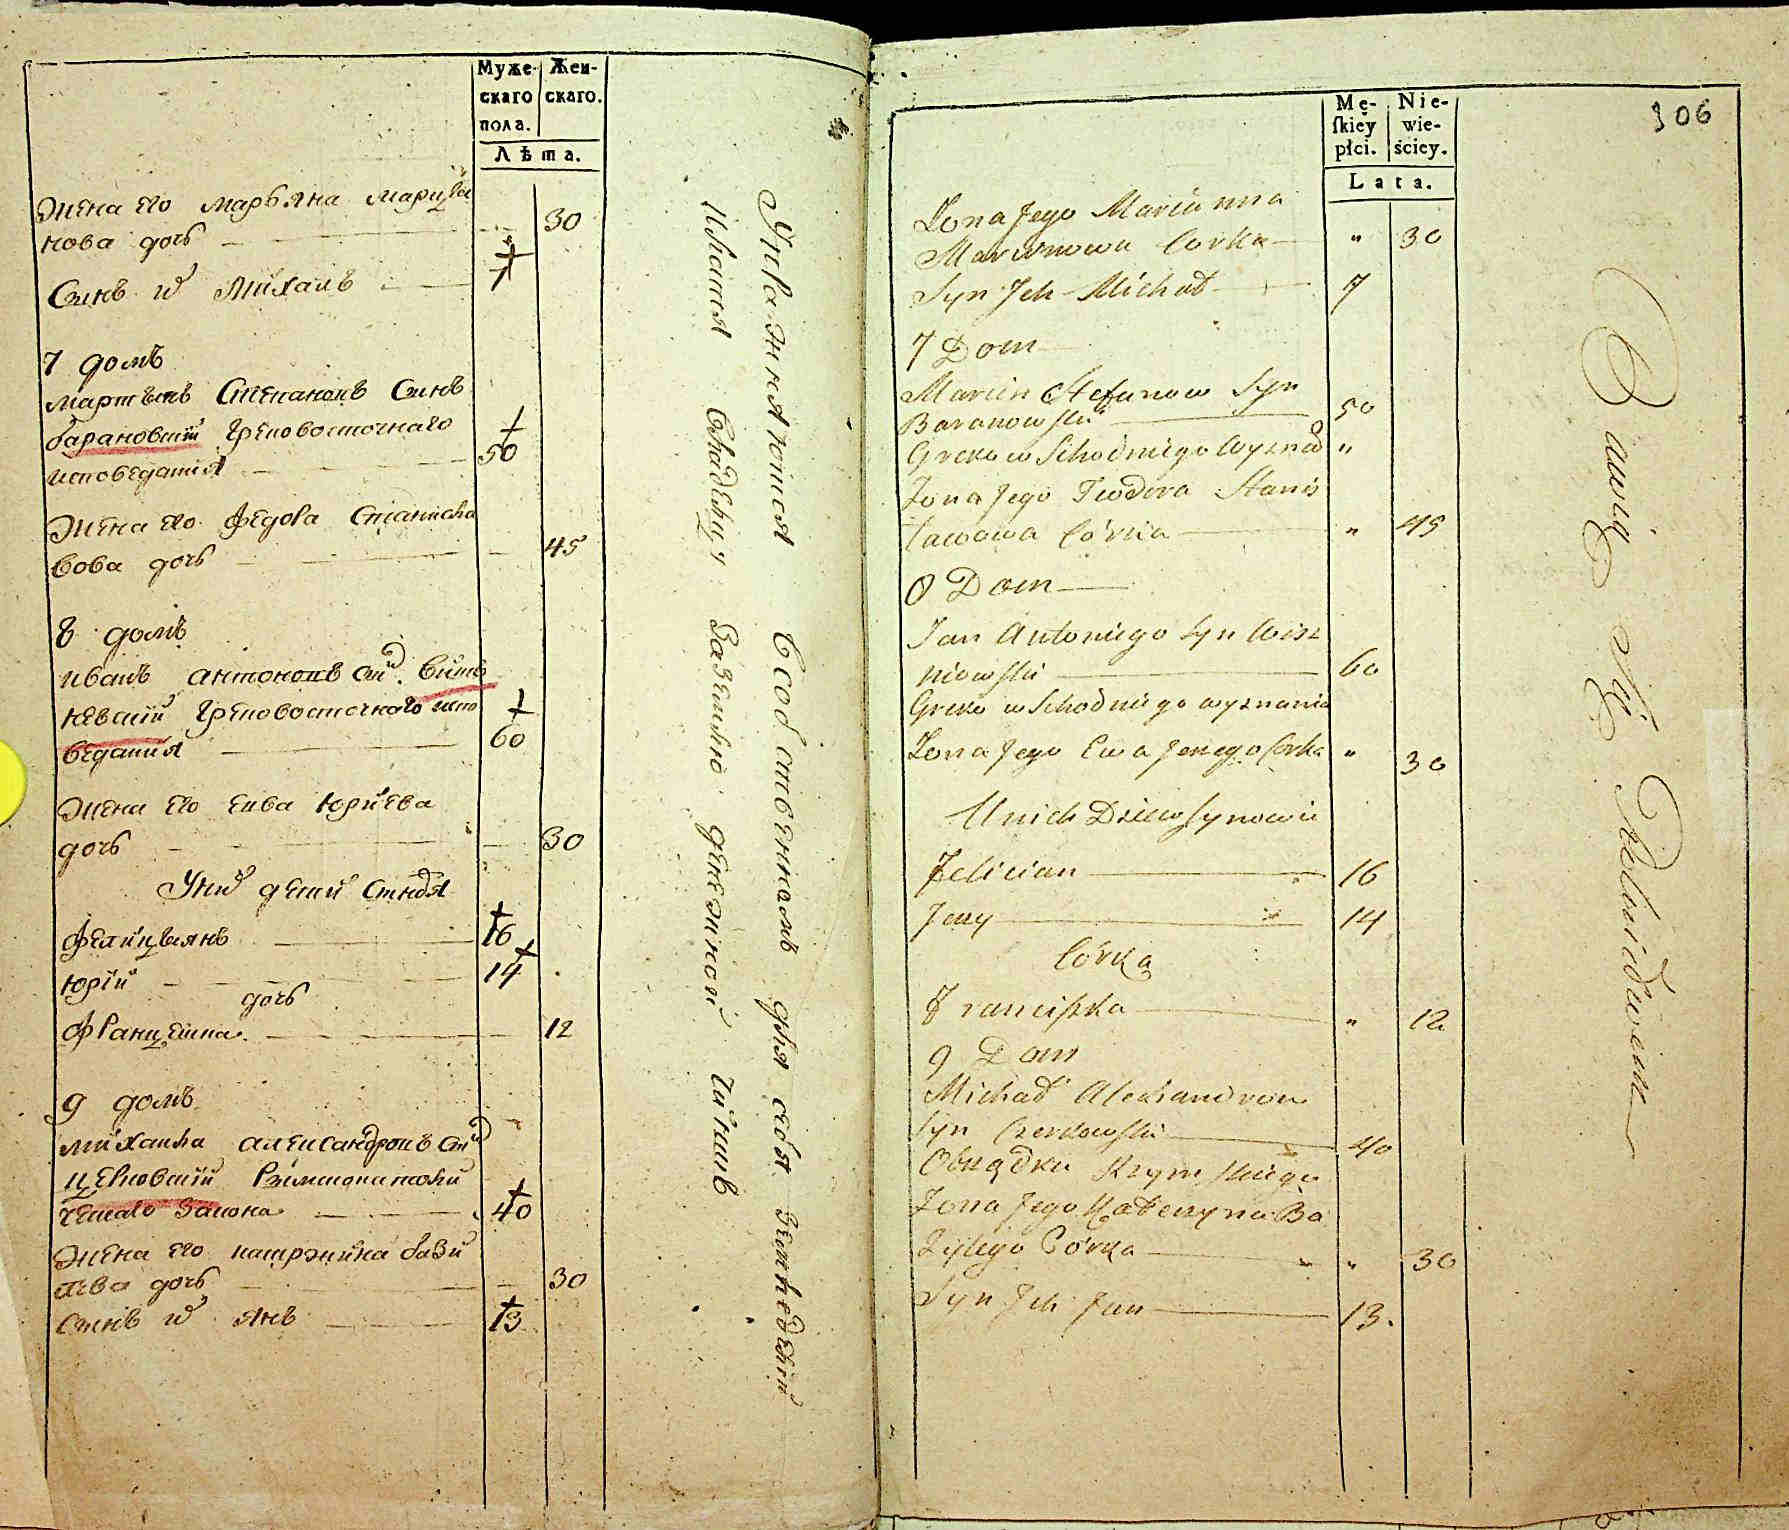 Муже-
скаго
пола.
Жен-
скаго.
Лѣта.
Жена Его Марьяна Марци
нова дочь — 30
Сынъ и Михаилъ — 7
7 домъ
Мартынъ Степановъ Сынъ
Барановскій Грековосточнаго
исповеданія — 50
Жена Его Федора Станисла
вова дочь — 45
8 домъ
Иванъ Антоновъ Сы. Вить
невскій Грековосточнаго испо
веданія — 60
Жена Его Ева Юрьева
дочь — 30
Фелицыянъ — 16
Юрій — 14
дочь
Францешка — 12
9 домъ
Михаила Александровъ Сы
Церковскій Римскокатоли
ческаго Закона — 40
Жена Его Катрэнина Бази
льва дочь — 30
Сынъ и Янъ — 13
Упражняются въ собственномъ для себя земледеліи
владельцу денежной чиншъ
306
Mę-
ſkiey
płci.
Nie-
wie-
ściey.
Lata.
Żona Jego Marianna
Marcinowa Corka — " 30
Syn Jch Michał — 7
7 Dom
Marcin Stefanow Syn
Baranowski — 50
Greko wschodniego wyznań "
Żona Jego Teodora Stanis
ławowa Córka — " 45
8 Dom
Jan Antoniego Syn Wisz
niowski — 60
Greko wschodniego wyznania
Żona Jego Ewa Jerzego Corka " 30
Unich Dzieci Synowie
Felician — 16
Jerzy — 14
Córka
Franciszka — " 12
9 Dom
Michał Alexandrow
Syn Czerkowski — 40
Obrządku Rzymskiego
Żona Jego Katerzyna Ba
zylego Córka — " 30
Syn Jch Jan — 13.
Bawią się Rolnictwem